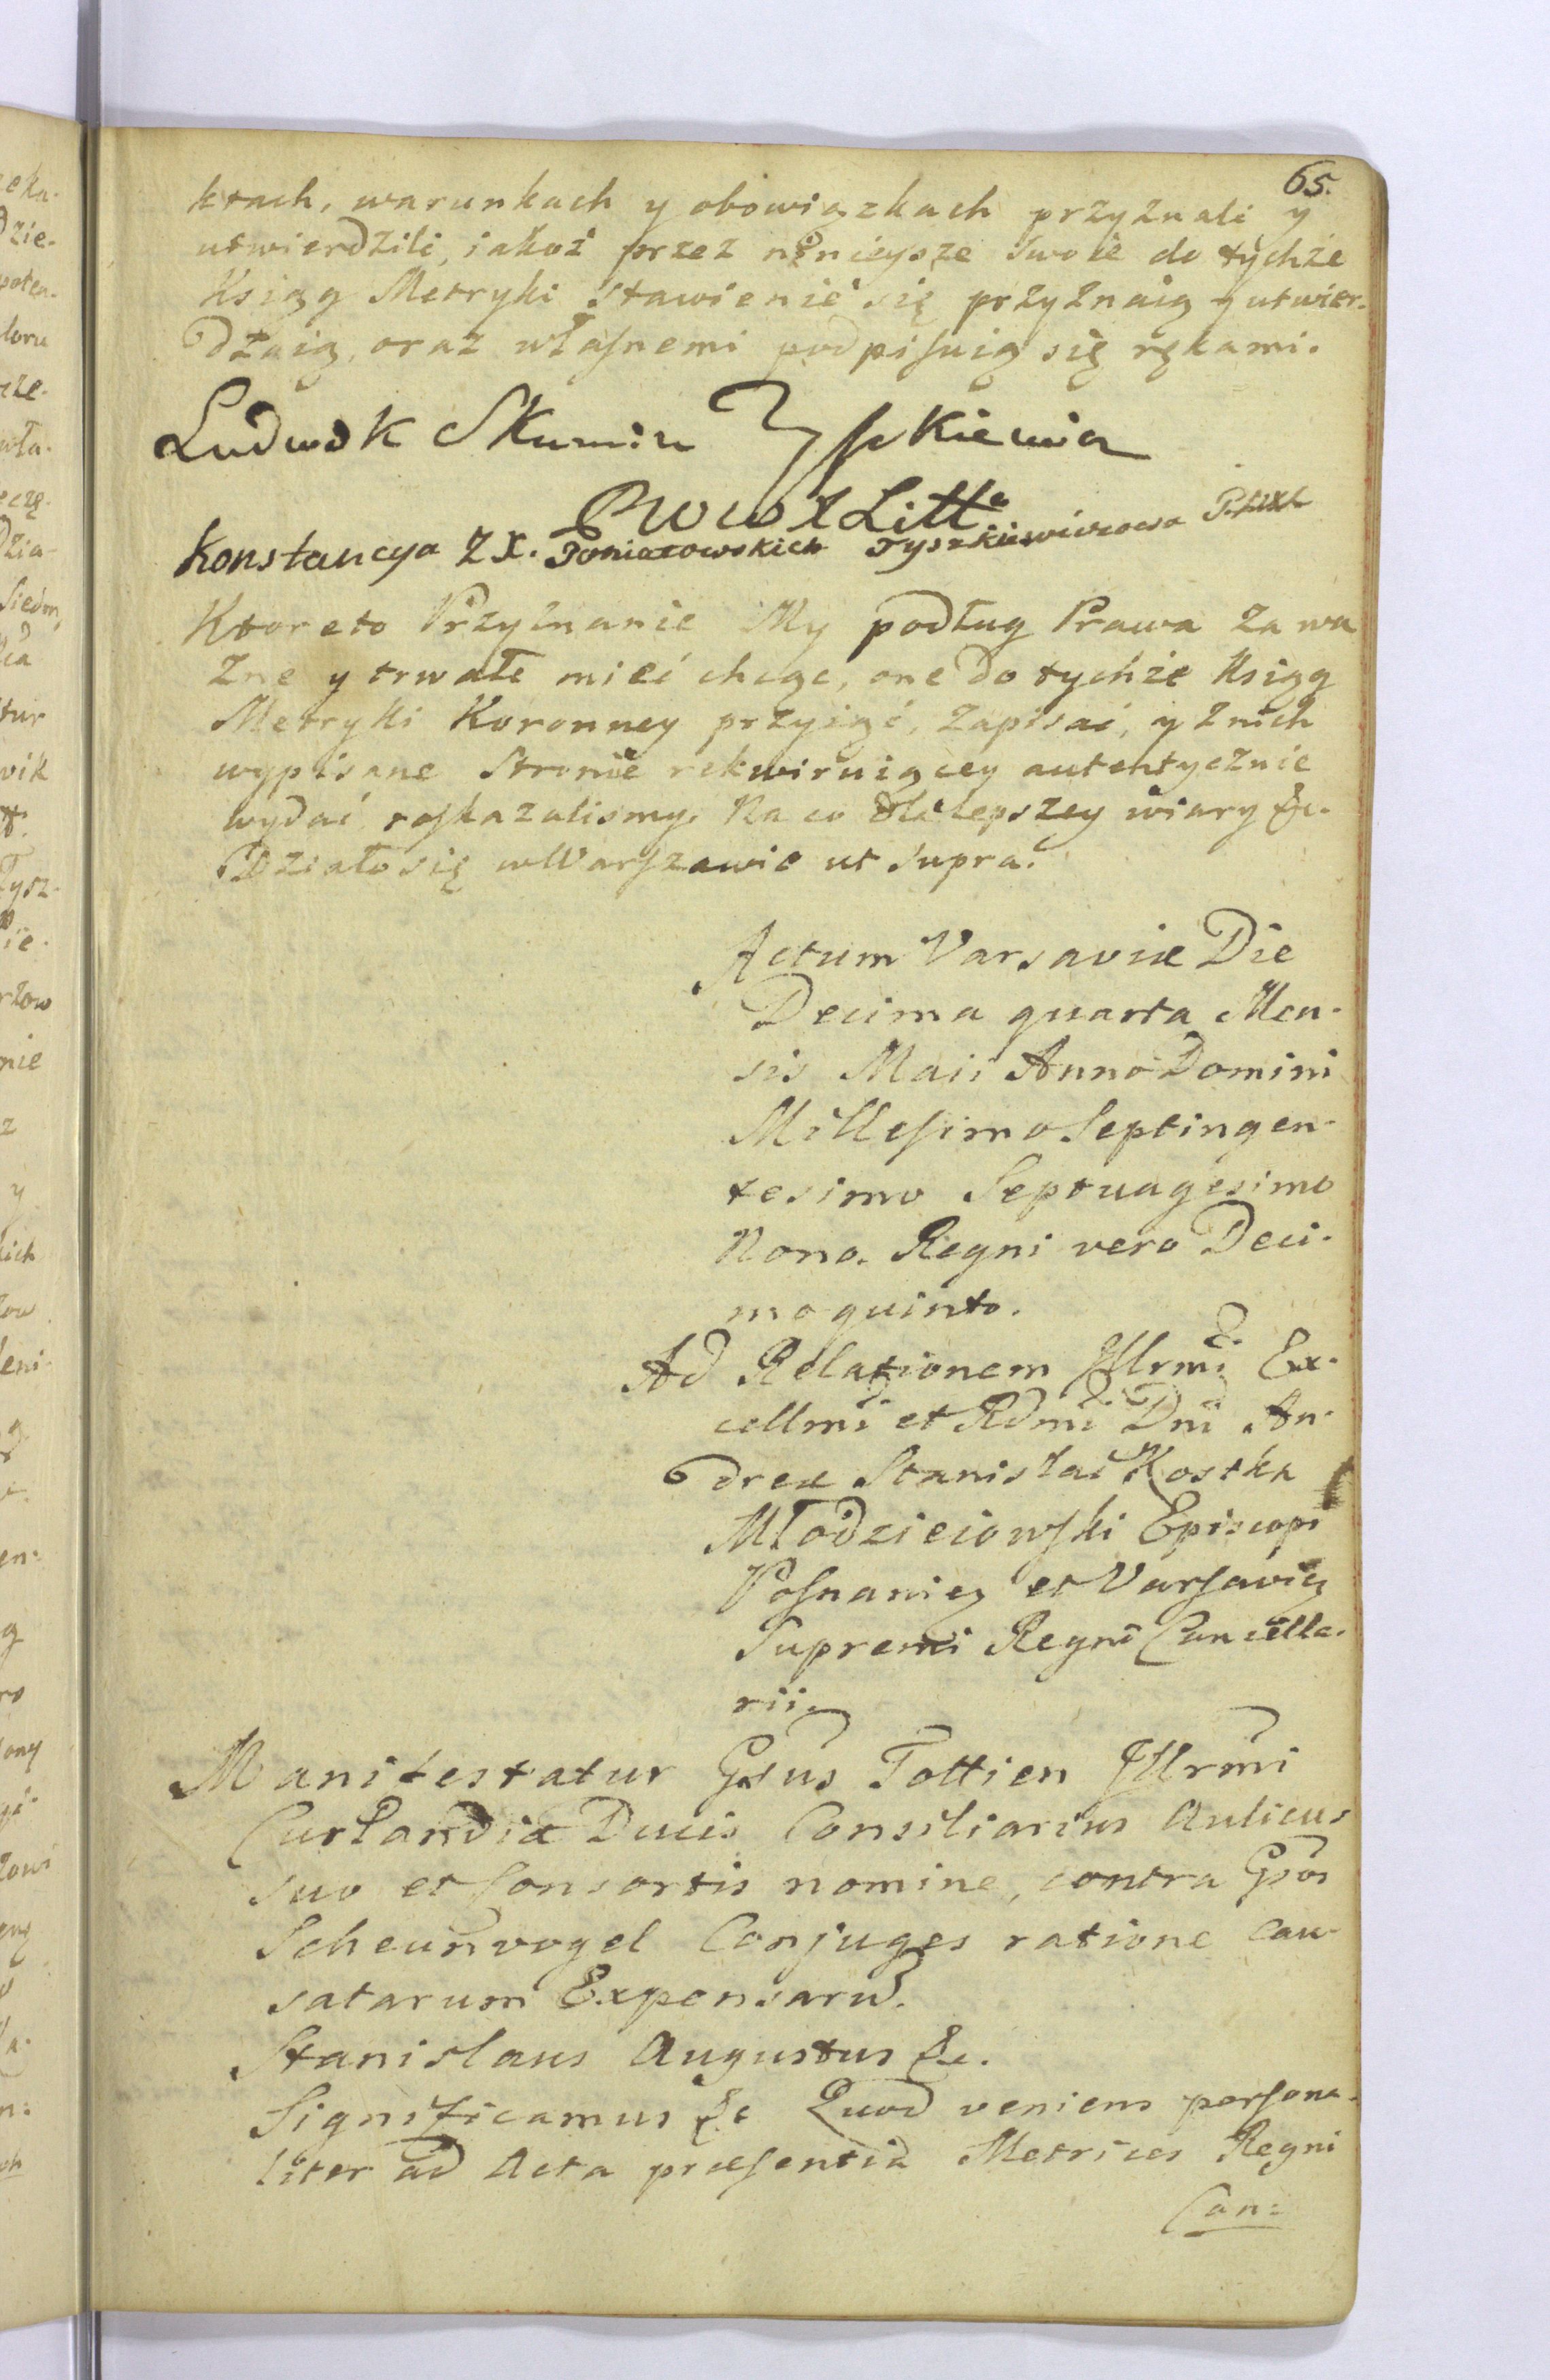 65.
ktach, warunkach y obowiązkach przyznali y
utwierdzili, iakoż przez ninieysze swoie do tychże
Ksiąg Metryki stawienie się przyznaią y utwier-
dzaią, oraz własnemi podpisuią się rękami.
Ludwik Skumin Tyszkiewicz
Litt
Konstancya z X. Poniatowskich Tyszkiewiczowa
Ktore to Przyznanie My podług Prawa za wa
żne y trwałe mieć chcąc, one do tychże Ksiąg
Metryki Koronney przyiąć, zapisać, y z nich
wypisane Stronie rekwiruiącey autentycznie
wydać roskazalismy. Na co dla lepszey wiary &c.
Działo się w Warszawie ut supra.
Actum Varsaviæ Die
Decima quarta Men-
sis Maii Anno Domini
Millesimo Septingen-
tesimo Septuagesimo
Nono. Regni vero Deci-
mo quinto.
Ad Relationem Illrmi Ex-
cellmi et Rdmi Dni An-
dreæ Stanislai Kostka
Młodzieiowski Episcopi
Posnanię et Varsavię
Supremi Regni Cancella-
rii.
Manifestatur Gsus Tottien Illrmi
Curlandiæ Ducis Consiliarius Aulicus
suo et Consortis nomine, contra Gsos
Scheunvogel Conjuges ratione cau-
satarum Expensarū.
Stanislaus Augustus &c.
Significamus &c Quod veniens persona-
liter ad Acta præsentia Metrices Regni
Can: